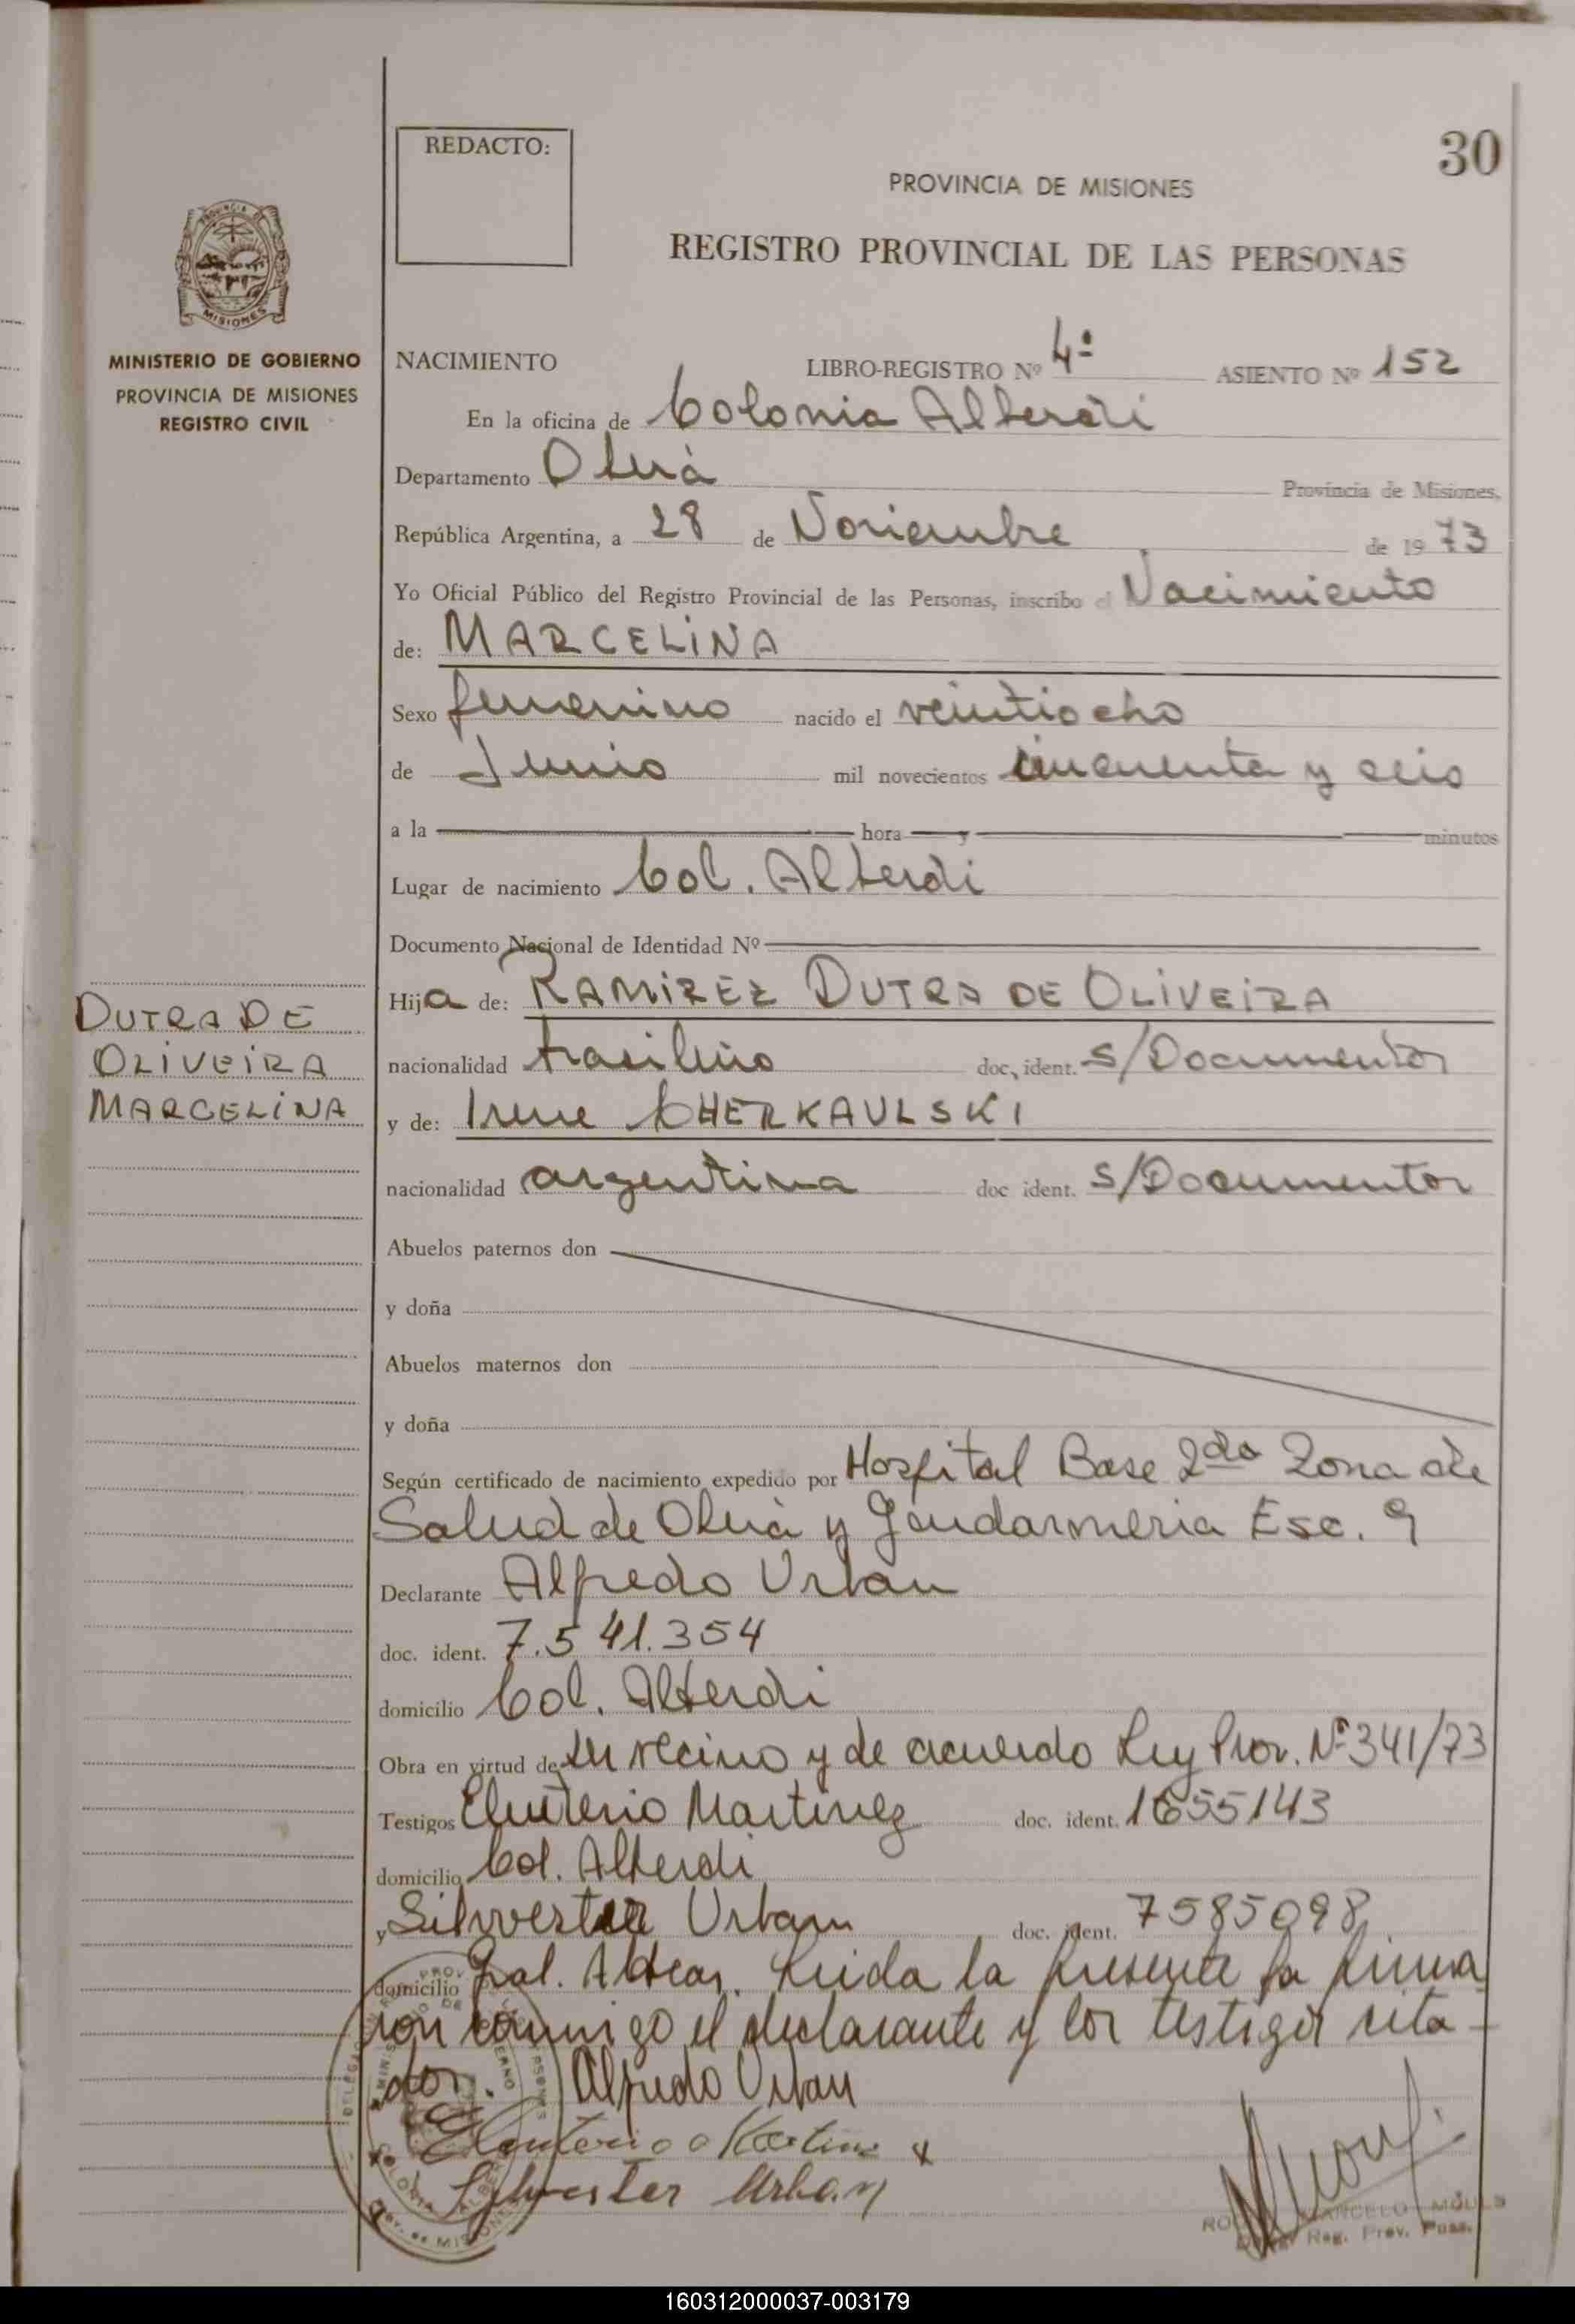 30
REDACTO:
PROVINCIA DE MISIONES
REGISTRO PROVINCIAL DE LAS PERSONAS
MISIONES
MINISTERIO DE GOBIERNO
PROVINCIA DE MISIONES
REGISTRO CIVIL
NACIMIENTO LIBRO-REGISTRO Nº 4º ASIENTO Nº 152
En la oficina de Colonia Alberdi
Departamento Oberá Provincia de Misiones,
República Argentina, a 28 de Noviembre de 1973
Yo Oficial Público del Registro Provincial de las Personas, inscribo el Nacimiento
de: MARCELINA
Sexo femenino nacido el veintiocho
de Junio mil novecientos cincuenta y seis
a la hora y minutos
Lugar de nacimiento Col. Alberdi
Documento Nacional de Identidad Nº
Hija de: RAMIREZ DUTRA DE OLIVEIRA
nacionalidad brasileño doc. ident. s/Documentos
y de: Irene CHERKAVLSKI
nacionalidad argentina doc ident. s/Documentos
DUTRA DE
OLIVEIRA
MARCELINA
Abuelos paternos don
y doña
Abuelos maternos don
y doña
Según certificado de nacimiento expedido por Hospital Base 2da Zona de
Salud de Oberá y Gendarmeria Esc. 9
Declarante Alfredo Urban
doc. ident. 7.541.354
domicilio Col. Alberdi
Obra en virtud de ser vecino y de acuerdo Ley Prov. Nº 341/73
Testigos Eleuterio Martinez doc. ident. 1655143
domicilio Col. Alberdi
y Silvester Urban doc. ident. 7585098
domicilio Gral. Alvear. Leida la presente la firma
ron conmigo el declarante y los testigos cita-
dos. Alfredo Urban
Eleuterio Martinez
Sylvester Urban
MARCELO
Reg. Prov. Pers.
160312000037-003179